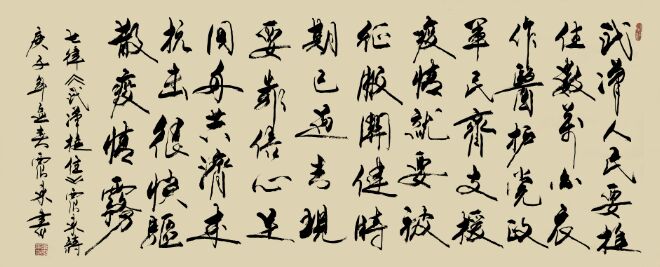 武漢人民要挺
住數萬白衣
作醫护党政
軍民齊支援
疫情就要被
征服關健時
期已去現
要靠信心足
同舟共濟来
抗击很快驅
散疫情霧
七律《武漢挺住》来詩
庚子年孟春来書